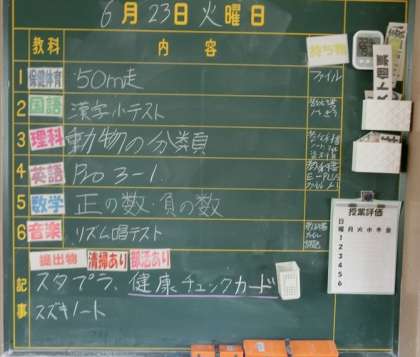 6月23日火曜日
教科 内容 持ち物
1 保健体育 50m走 ファイル
2 国語 漢字小テスト
3 理科 動物の分類
4 英語 Pro 3-1
5 数学 正の数・負の数
6 音楽 リズム唱テスト
提出物 清掃あり 部活あり
記事 スタプラ、健康チェックカード
スズキノート
授業評価
日
曜 月 火 水 木 金
1
2
3
4
5
6